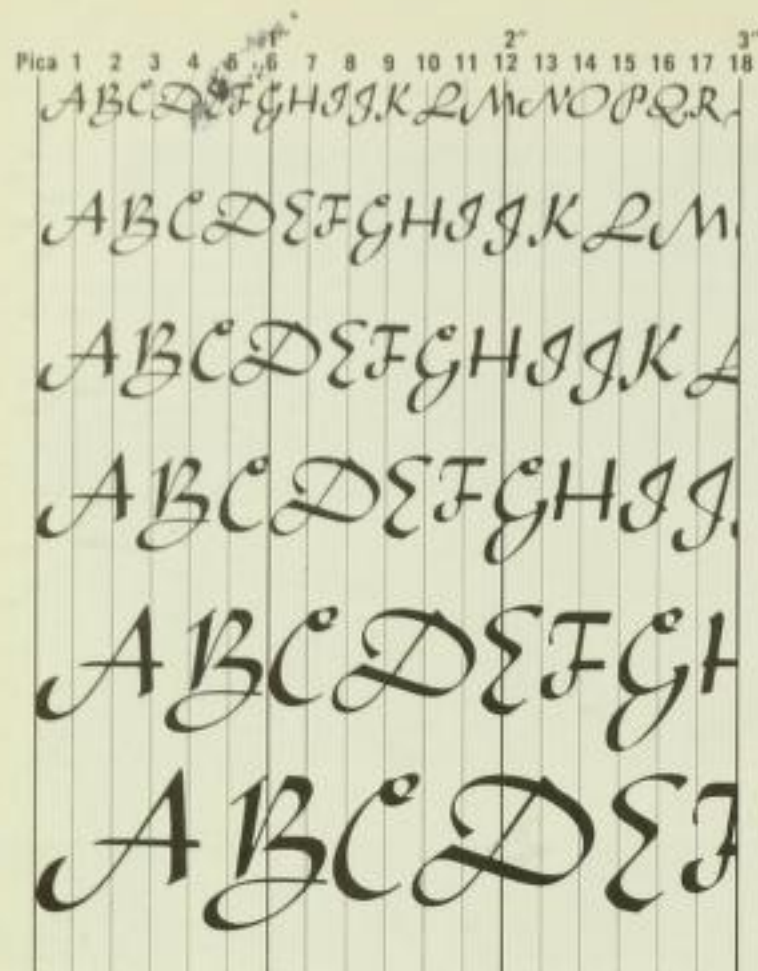 1" 2" 3"
Pica 1 2 3 4 5 6 7 8 9 10 11 12 13 14 15 16 17 18
ABCDEFGHIJKLMNOPQR
ABCDEFGHIJKLM
ABCDEFGHIJKL
ABCDEFGHIJ
ABCDEFGH
ABCDEF